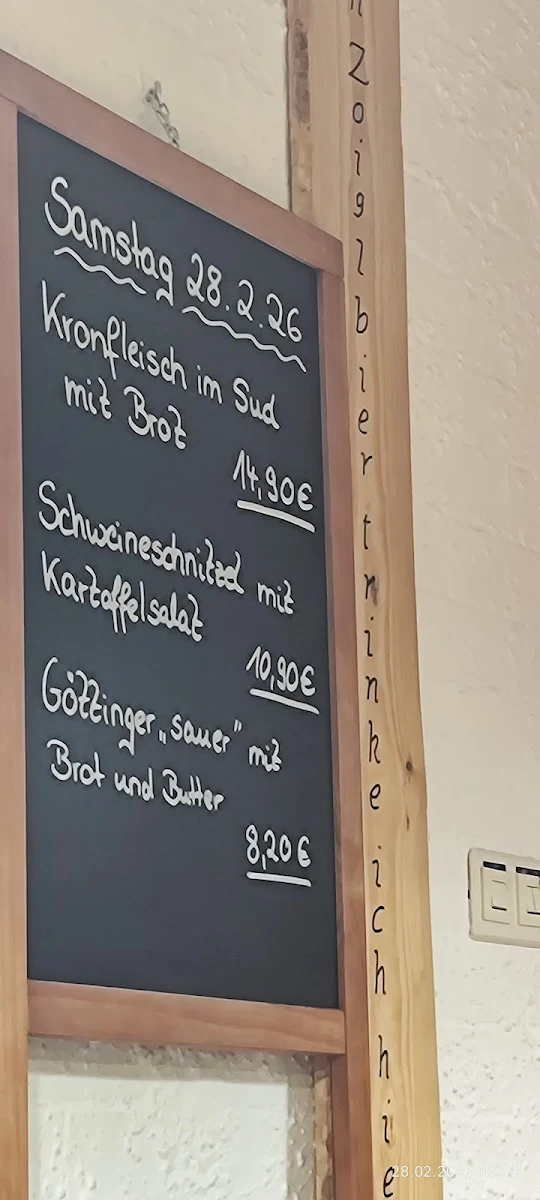 Samstag 28.2.26
Kronfleisch im Sud
mit Brot
14,90€
Schweineschnitzel mit
Kartoffelsalat
10,90€
Göttinger „sauer" mit
Brot und Butter
8,20€
n Zoiglbier trinke ich hie
28.02.2026